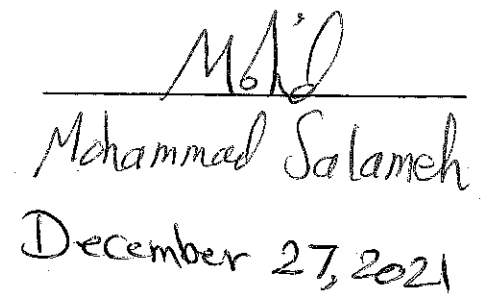 Moh'd
Mohammad Salameh
December 27, 2021